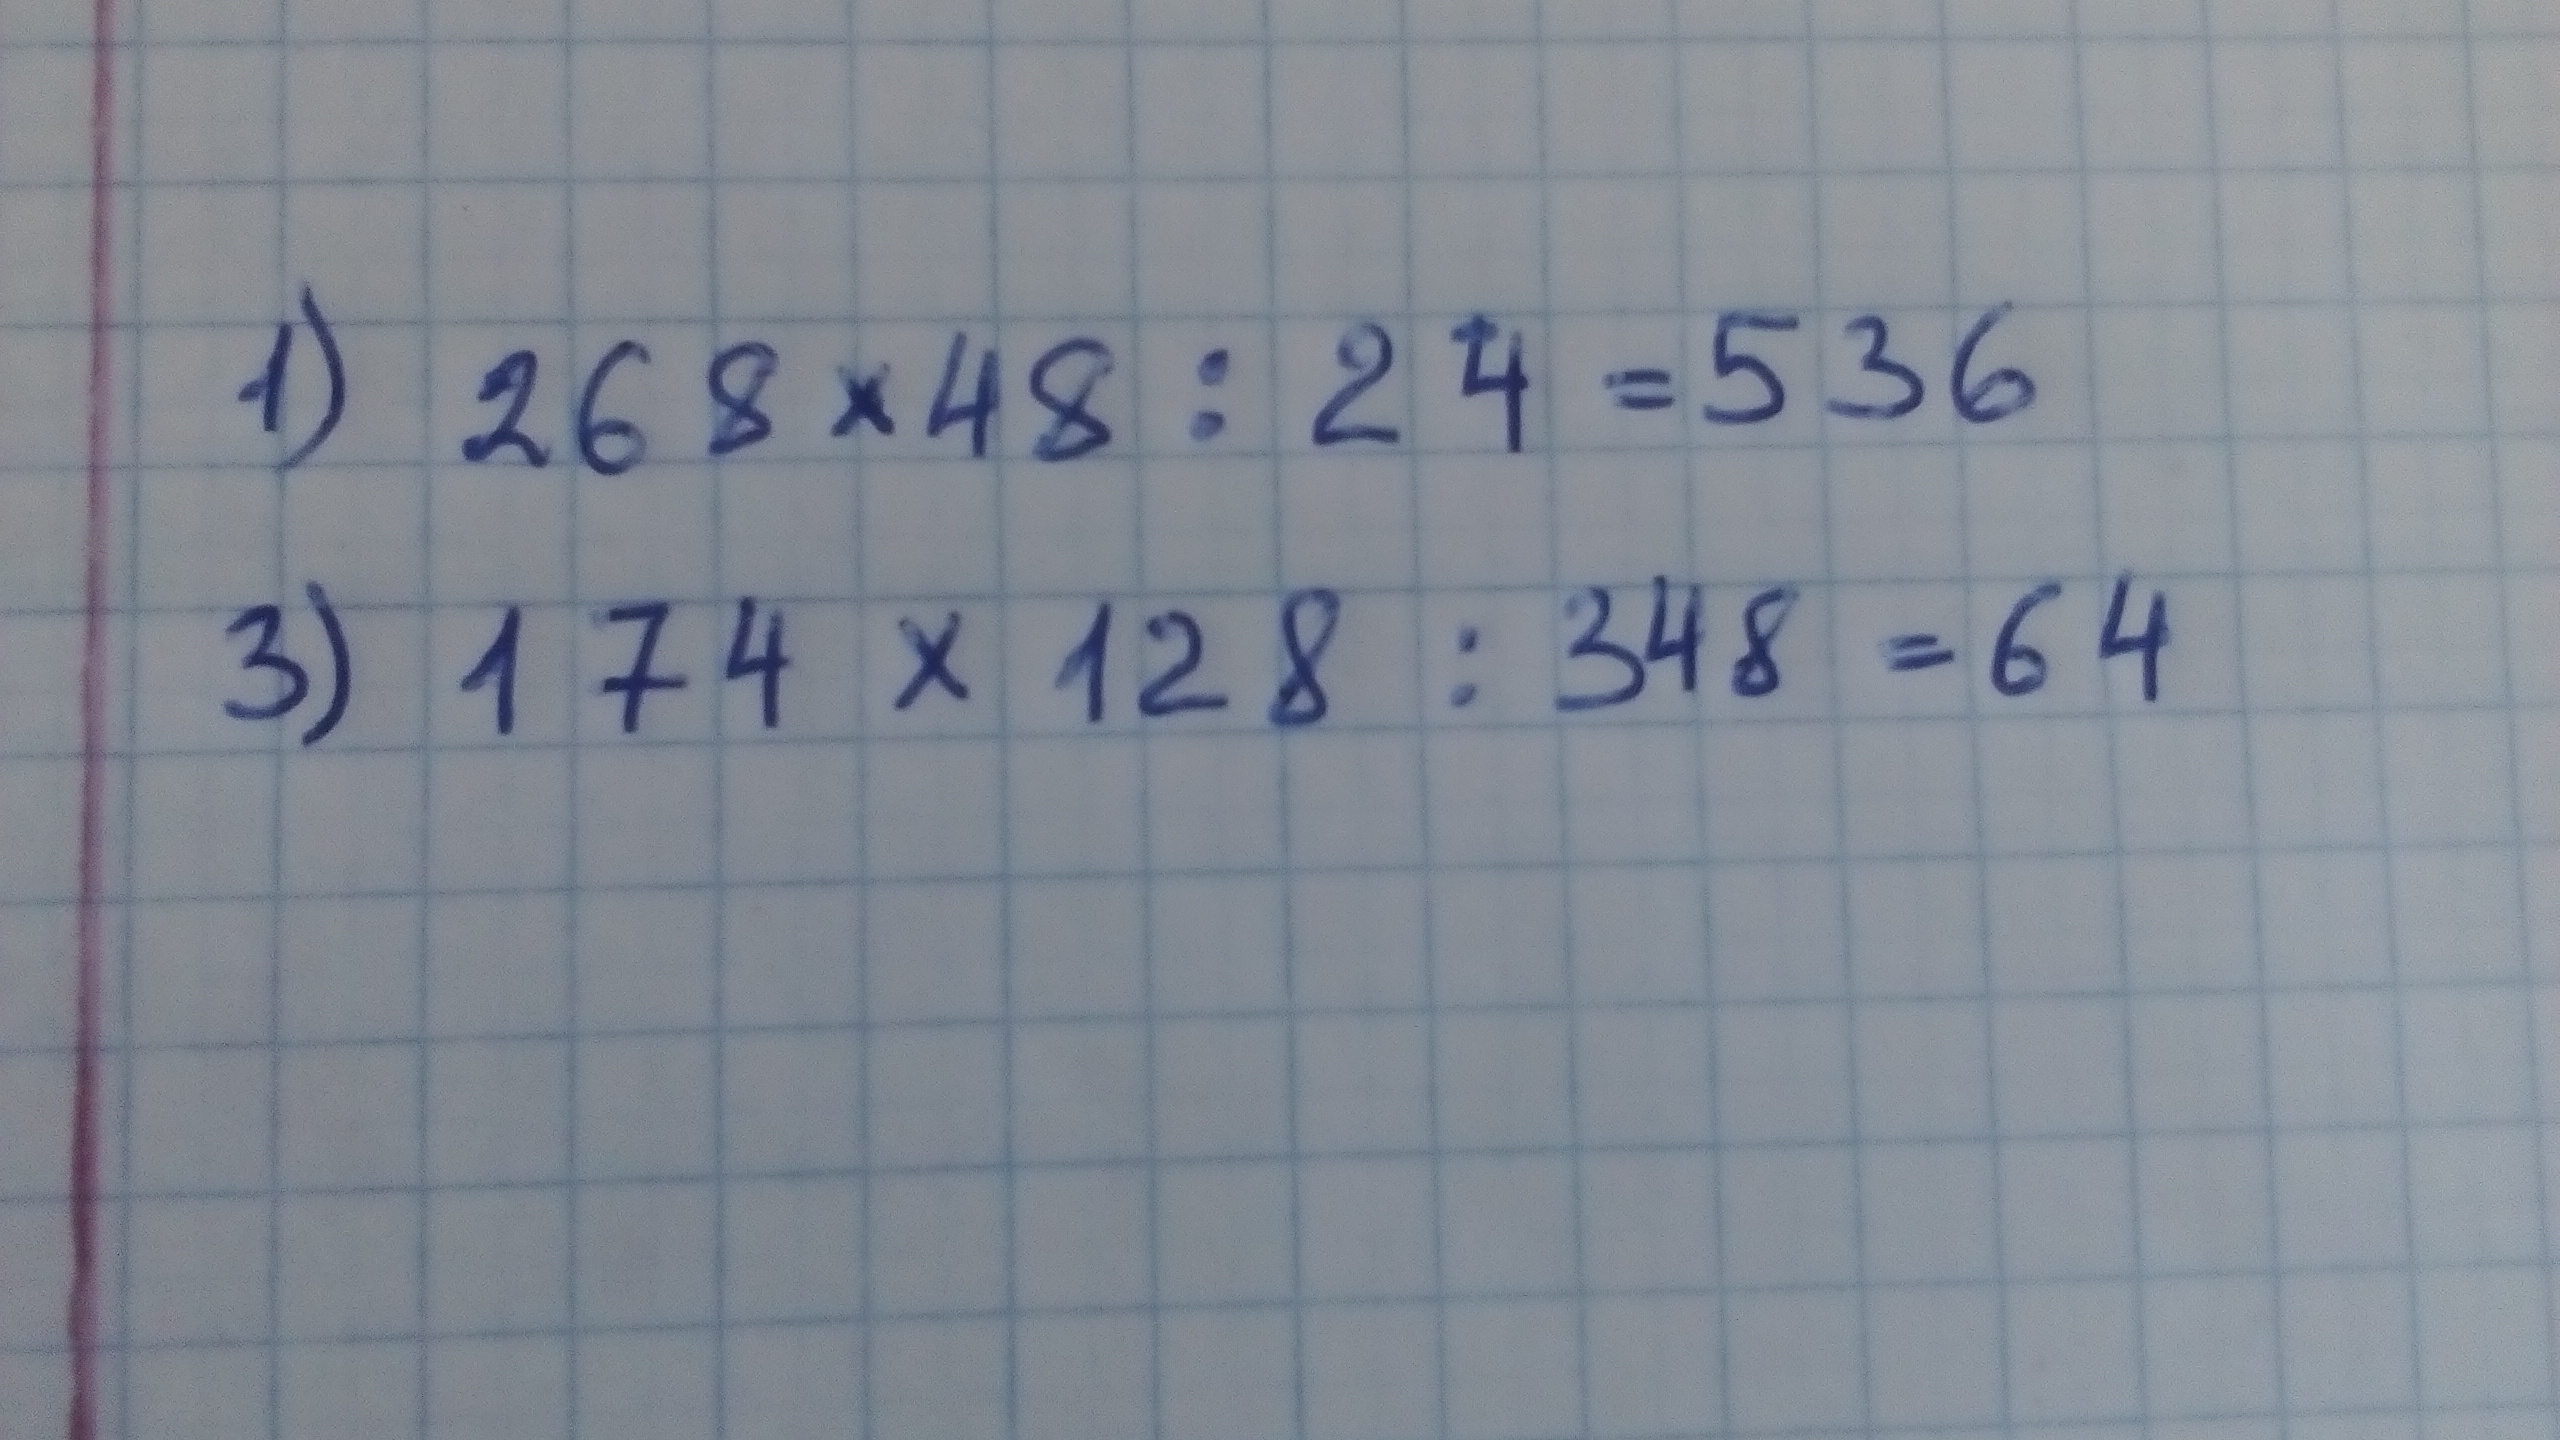 1) 268 × 48 : 24 = 536
3) 174 × 128 : 348 = 64